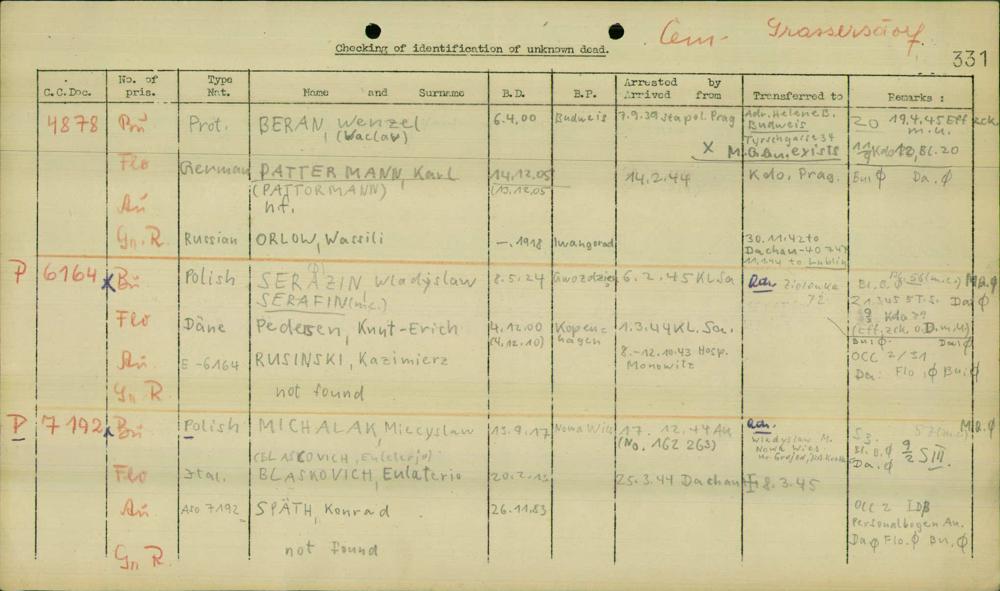 Cem- Grassersdorf.
Checking of identification of unknown dead.
331
C.C.Doc. No. of pris. Type Nat. Name and Surname B.D. B.P. Arrested by Arrived from Transferred to Remarks :
4878 Bu Prot. BERAN, Wenzel 6.4.00 Budweis 7.9.39 Stapol. Prag Adr. Helene B. ZO 19.4.45 Eff zck.
(Waclav) Budweis m.u.
Tyrschgasse 34
X M.G.Bu. exists 12, Bl. 20
Flo German PATTERMANN, Karl 14.12.05 14.2.44 Kdo. Prag. Bu. Ø Da. Ø
(PATTORMANN) (13.12.05
Au n.f.
Gn. R. Russian ORLOW, Wassili —.1918 Iwangorod 30.11.42 to
Dachau-40747
11.1.44 to Lublin
P 6164 x Bu Polish SERAZIN Wladyslaw 8.5.24 Gwozdziej 6.2.45 KL Sa Adr. Ziolonka M.B.Ø
(f) 72
SERAFIN (m.c.) 21.3.45 5 T.S. Da Ø
Flo Däne Pedersen, Knut-Erich 4.12.00 Kopen- 1.3.44 KL. Sa. Kdo 39
(4.12.10) hagen (Eff. zck. o.D. m.u.)
Bu. Ø Da. Ø
Au. E -6164 RUSINSKI, Kazimierz 8.-12.10.43 Hosp. OCC 2/31
Monowitz Da: Flo. Ø Bu. Ø
Gn R not found
P 7192 x Bu Polish MICHALAK, Miecyslaw 13.9.17 Nowa Wies 17.12.44 Au Adr. M.B.Ø
(No. 162 263) Wladyslaw M. S3.
Nowa Wies Bl. B. Ø 9/2 SIII.
(BLASCOVICH, Euleterjo) Da. Ø
Flo Ital. BLASKOVICH, Eulaterio 20.2.13 25.3.44 Dachau ✝ 8.3.45
Au. Aso 7192 SPÄTH, Konrad 26.11.83 OCC 2 IDB
Personalbogen Au.
Gn R. not found Da Ø Flo. Ø Bu. Ø